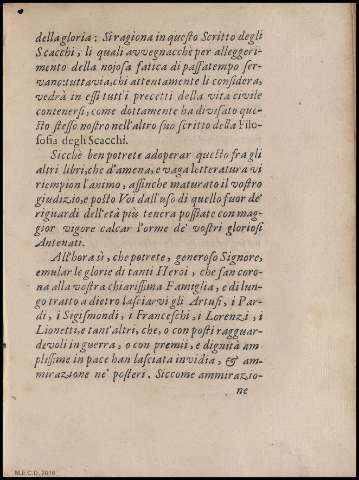 della gloria: Si ragiona in questo Scritto degli
Scacchi, li quali avvegnacchè per alleggeri-
mento della nojosa fatica di passatempo ser-
vano: tuttavia, chi attentamente li considera,
vedrà in essi tutt'i precetti della vita civile
contenersi, come dottamente ha divisato que-
sto stesso nostro nell'altro suo scritto della Filo-
sofia degli Scacchi.
Sicchè ben potrete adoperar questo fra gli
altri libri, che d'amena, e vaga letteratura vi
riempion l'animo, assinche maturato il vostro
giudizio, e posto Voi dall'uso di quello fuor de'
riguardi dell'età più tenera possiate con mag-
gior vigore calcar l'orme de' vostri gloriosi
Antenati.
All'hora sì, che potrete, generoso Signore,
emular le glorie di tanti Heroi, che fan coro-
na alla vostra chiarissima Famiglia, e di lun-
go tratto a dietro lasciarvi gli Artusi, i Par-
di, i Sigismondi, i Franceschi, i Lorenzi, i
Lionetti, e tant'altri, che, o con posti ragguar-
devoli in guerra, o con premii, e dignità am-
plissime in pace han lasciata invidia, & am-
mirazione ne' posteri. Siccome ammirazio-
ne
M.E.C.D. 2016